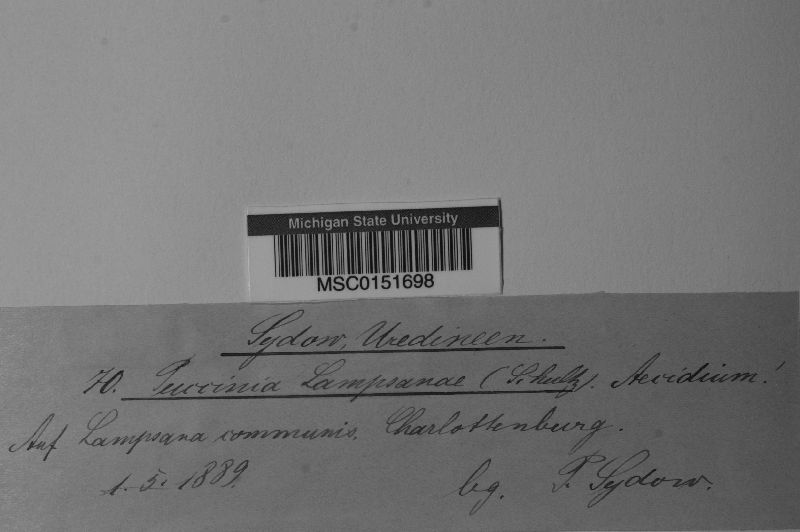 Michigan State University
MSC0151698
Sydow, Uredineen.
70. Puccinia Lampsanae (Schultz). Aecidium!
Auf Lampsana communis. Charlottenburg.
1. 5. 1889. lg. P. Sydow.